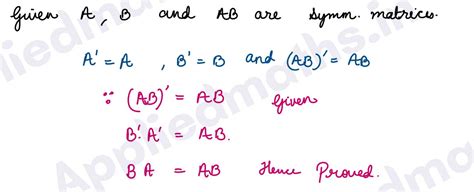 Given A, B and AB are symm. matrices.
A' = A , B' = B and (AB)' = AB
∵ (AB)' = AB Given
B' A' = AB.
B A = AB Hence Proved.
Appliedmaths.in